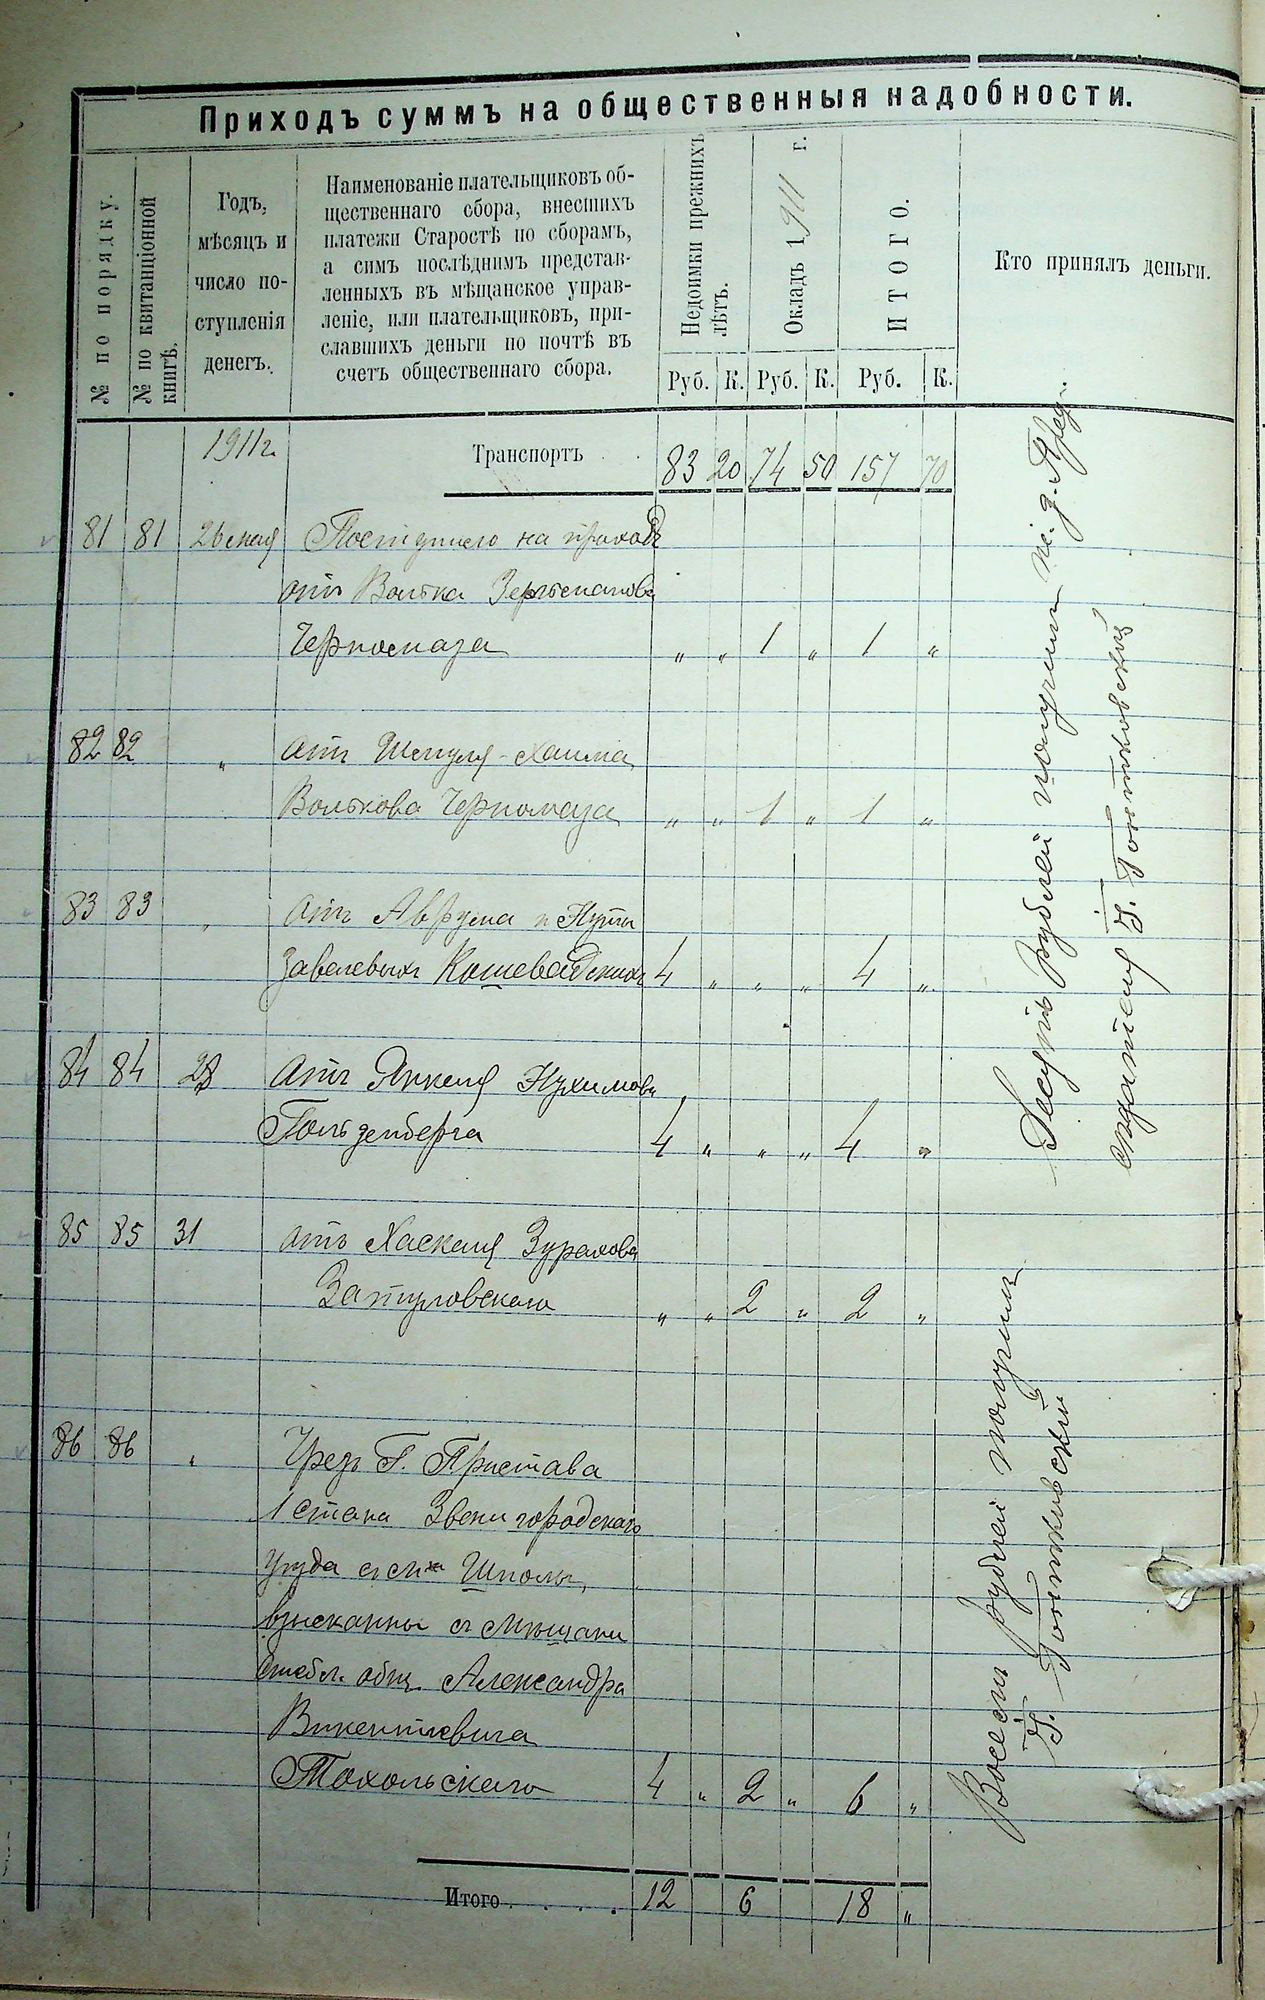 Приходъ суммъ на общественныя надобности.
№ по порядку.
№ по квитанціонной
книгѣ.
Годъ,
мѣсяцъ и
число по-
ступленія
денегъ.
Наименованіе плательщиковъ об-
щественнаго сбора, внесшихъ
платежи Старостѣ по сборамъ,
а симъ послѣднимъ представ-
ленныхъ въ мѣщанское управ-
леніе, или плательщиковъ, при-
славшихъ деньги по почтѣ въ
счетъ общественнаго сбора.
Недоимки прежнихъ
лѣтъ.
Окладъ 1911 г.
ИТОГО.
Кто принялъ деньги.
Руб. К. Руб. К. Руб. К.
1911 г. Транспортъ 83 20 74 50 157 70
81 81 26 мая Поступило на приходъ
отъ Волька
Черномаза " " 1 " 1 "
82 82 " отъ Шмуля-Хаима
Волькова Черномаза " " 1 " 1 "
83 83 " отъ Аврума и Нуты
Завелевыхъ 4 " " " 4 "
84 84 28 отъ Янкеля Нухимова
Гольденберга 4 " " " 4 "
85 85 31 отъ Хаскеля
Затуловскаго " " 2 " 2 "
86 86 " Чрезъ Г. Пристава
1 стана Звенигородскаго
уѣзда съ м. Шполы,
взысканны съ мѣщани
Стебл. общ. Александра
Викентіевича
Тохольскаго 4 " 2 " 6 "
Итого 12 6 18 "
Десять рублей получилъ и. д. Пред
сѣдателя
Восемь рублей получилъ